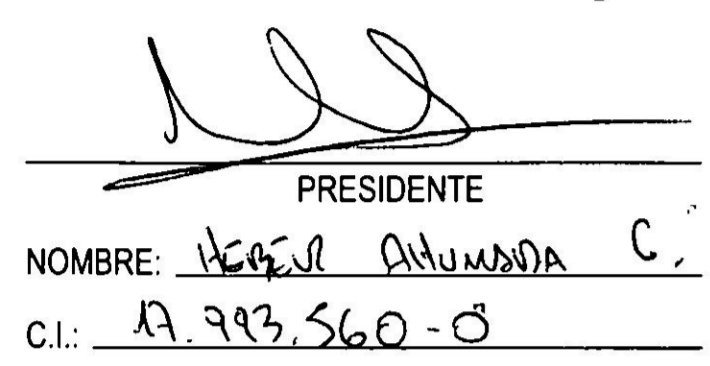 PRESIDENTE
NOMBRE: HEBER AHUMADA C.
C.I.: 17.993.560-0